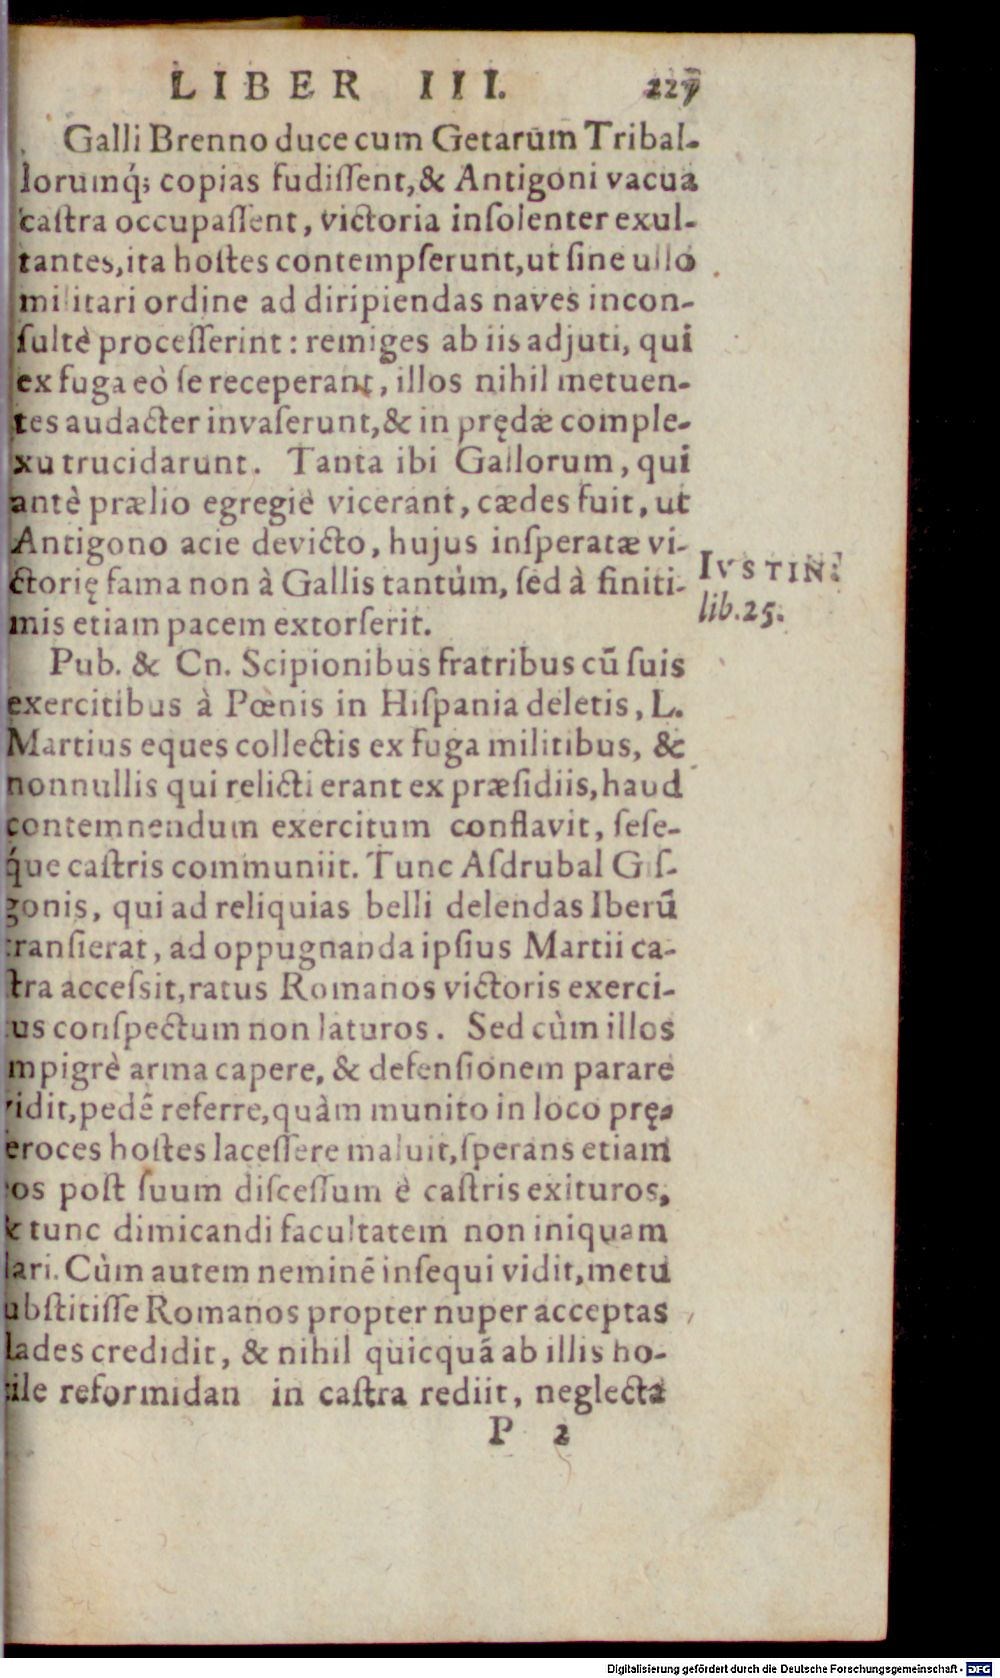 LIBER III. 227
Galli Brenno duce cum Getarūm Tribal-
lorumq́; copias fudiſſent, & Antigoni vacua
caſtra occupaſſent, victoria inſolenter exul-
tantes, ita hoſtes contempſerunt, ut ſine ullo
militari ordine ad diripiendas naves incon-
ſultè proceſſerint: remiges ab iis adjuti, qui
ex fuga eò ſe receperant, illos nihil metuen-
tes audacter invaſerunt, & in prędæ comple-
xu trucidarunt. Tanta ibi Gallorum, qui
antè prælio egregiè vicerant, cædes fuit, ut
Antigono acie devicto, hujus inſperatæ vi-
ctorię fama non à Gallis tantùm, ſed à finiti-
mis etiam pacem extorſerit.
IVSTIN.
lib. 25.
Pub. & Cn. Scipionibus fratribus cū ſuis
exercitibus à Pœnis in Hiſpania deletis, L.
Martius eques collectis ex fuga militibus, &
nonnullis qui relicti erant ex præſidiis, haud
contemnendum exercitum conflavit, ſeſe-
q́ue caſtris communiit. Tunc Aſdrubal Giſ-
gonis, qui ad reliquias belli delendas Iberū
tranſierat, ad oppugnanda ipſius Martii ca-
ſtra acceſsit, ratus Romanos victoris exerci-
us conſpectum non laturos. Sed cùm illos
mpigrè arma capere, & defenſionem parare
vidit, pedē referre, quàm munito in loco prę-
eroces hoſtes laceſſere maluit, ſperans etiam
eos poſt ſuum diſceſſum è caſtris exituros,
& tunc dimicandi facultatem non iniquam
dari. Cùm autem neminē inſequi vidit, metu
ubſtitiſſe Romanos propter nuper acceptas
lades credidit, & nihil quicquā ab illis ho-
tile reformidan in caſtra rediit, neglecta
P 2
Digitalisierung gefördert durch die Deutsche Forschungsgemeinschaft - DFG